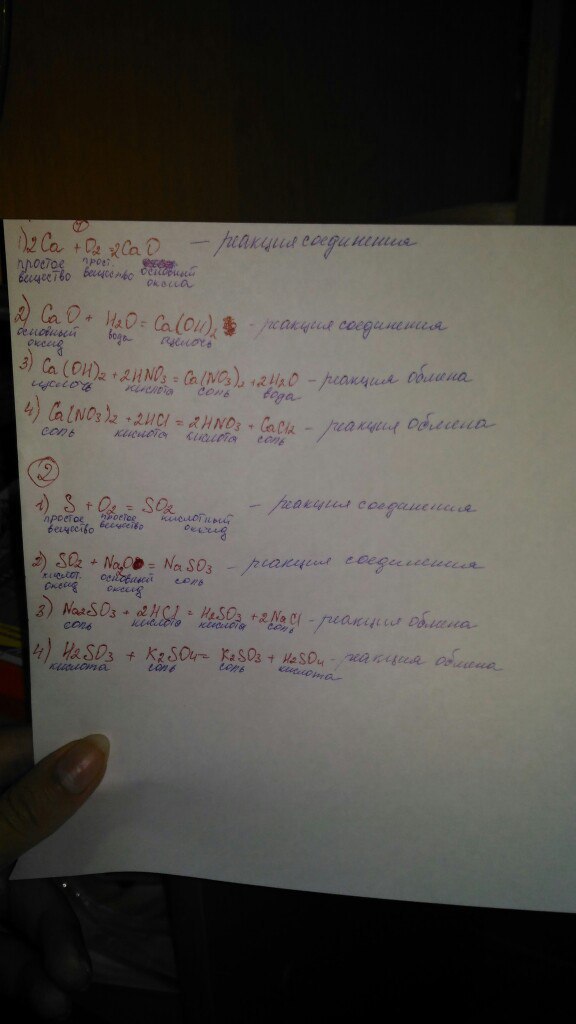 ①
1) 2Ca + O₂ = 2CaO — реакция соединения
простое прост. основный
вещество вещество оксид
2) CaO + H₂O = Ca(OH)₂ - реакция соединения
основный вода щелочь
оксид
3) Ca(OH)₂ + 2HNO₃ = Ca(NO₃)₂ + 2H₂O - реакция обмена
щелочь кислота соль вода
4) Ca(NO₃)₂ + 2HCl = 2HNO₃ + CaCl₂ - реакция обмена
соль кислота кислота соль
②
1) S + O₂ = SO₂ - реакция соединения
простое простое кислотный
вещество вещество оксид
2) SO₂ + Na₂O = NaSO₃ - реакция соединения
кислот. основный соль
оксид оксид
3) Na₂SO₃ + 2HCl = H₂SO₃ + 2NaCl - реакция обмена
соль кислота кислота соль
4) H₂SO₃ + K₂SO₄ = K₂SO₃ + H₂SO₄ - реакция обмена
кислота соль соль кислота